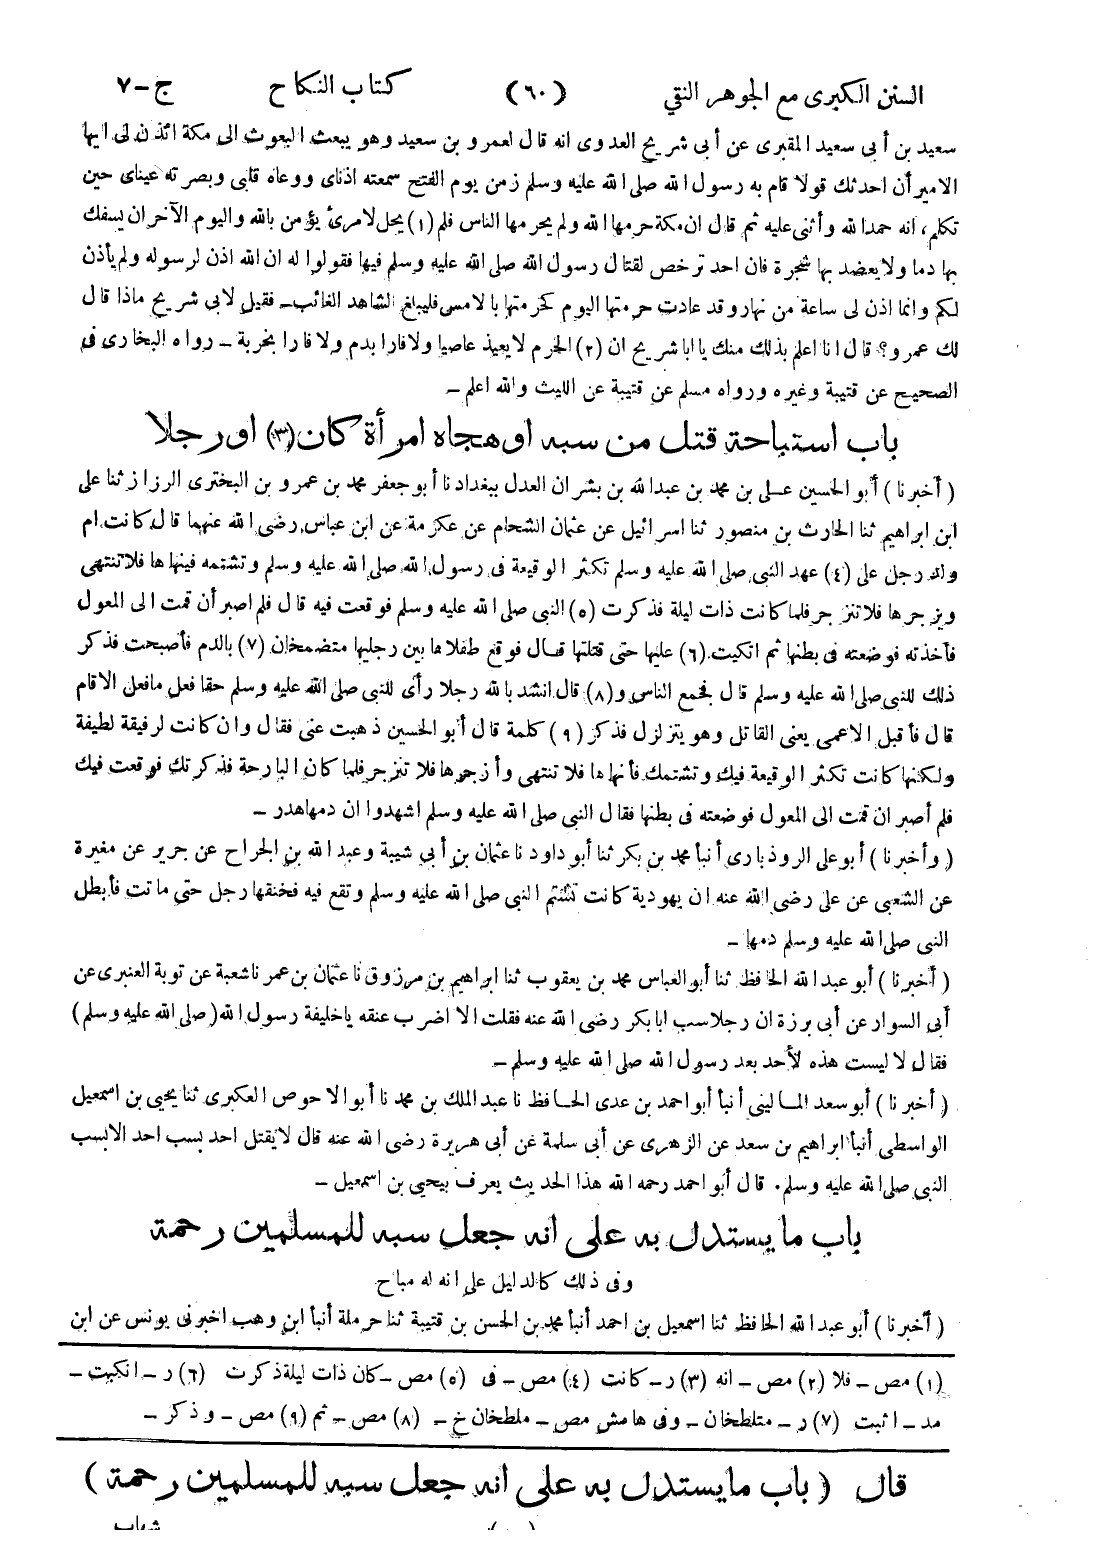 السنن الكبرى مع الجوهر النقي (٦٠) كتاب النكاح ج-٧
سعيد بن أبي سعيد المقبرى عن أبي شريح العدوى انه قال لعمرو بن سعيد وهو يبعث البعوث الى مكة ائذن لى ايها
الامير أن احدثك قولا قام به رسول الله صلى الله عليه وسلم زمن يوم الفتح سمعته اذناى ووعاه قلبى وبصرته عيناى حين
تكلم، انه حمد الله وأثنى عليه ثم قال ان مكة حرمها الله ولم يحرمها الناس فلم (١) يحل لامرئ يؤمن بالله واليوم الآخر ان يسفك
بها دما ولا يعضد بها شجرة فان احد ترخص لقتال رسول الله صلى الله عليه وسلم فيها فقولوا له ان الله اذن لرسوله ولم يأذن
لكم وانما اذن لى ساعة من نهار وقد عادت حرمتها اليوم كحرمتها بالامس فليبلغ الشاهد الغائب - فقيل لابى شريح ماذا قال
لك عمرو؟ قال انا اعلم بذلك منك يا ابا شريح ان (٢) الحرم لا يعيذ عاصيا ولا فارا بدم ولا فارا بخربة - رواه البخارى فى
الصحيح عن قتيبة وغيره ورواه مسلم عن قتيبة عن الليث والله اعلم -
باب استباحة قتل من سبه او هجاه امرأة كان (٣) او رجلا
(أخبرنا) أبو الحسين على بن محمد بن عبد الله بن بشران العدل ببغداد نا أبو جعفر محمد بن عمرو بن البخترى الرزاز ثنا على
ابن ابراهيم ثنا الحارث بن منصور ثنا اسرائيل عن عثمان الشحام عن عكرمة عن ابن عباس رضى الله عنهما قال كانت ام
ولد رجل على (٤) عهد النبى صلى الله عليه وسلم تكثر الوقيعة فى رسول الله صلى الله عليه وسلم وتشتمه فينهاها فلا تنتهى
ويزجرها فلا تنزجر فلما كانت ذات ليلة فذكرت (٥) النبى صلى الله عليه وسلم فوقعت فيه قال فلم اصبر أن قمت الى المعول
فأخذته فوضعته فى بطنها ثم اتكيت (٦) عليها حتى قتلتها قال فوقع طفلاها بين رجليها متضمخان (٧) بالدم فأصبحت فذكر
ذلك للنبى صلى الله عليه وسلم قال فجمع الناس و (٨) قال انشد بالله رجلا رأى للنبى صلى الله عليه وسلم حقا فعل ما فعل الا قام
قال فأقبل الاعمى يعنى القاتل وهو يتزلزل فذكر (٩) كلمة قال أبو الحسين ذهبت عنى فقال وان كانت لرفيقة لطيفة
ولكنها كانت تكثر الوقيعة فيك وتشتمك فأنهاها فلا تنتهى وأزجرها فلا تنزجر فلما كان البارحة فذكرتك فوقعت فيك
فلم أصبر ان قمت الى المعول فوضعته فى بطنها فقال النبى صلى الله عليه وسلم اشهدوا ان دمها هدر -
(وأخبرنا) أبو على الروذبارى أنبأ محمد بن بكر ثنا أبو داود نا عثمان بن أبي شيبة وعبد الله بن الجراح عن جرير عن مغيرة
عن الشعبى عن على رضى الله عنه ان يهودية كانت تشتم النبى صلى الله عليه وسلم وتقع فيه فخنقها رجل حتى ماتت فأبطل
النبى صلى الله عليه وسلم دمها -
(أخبرنا) أبو عبد الله الحافظ ثنا أبو العباس محمد بن يعقوب ثنا ابراهيم بن مرزوق نا عثمان بن عمر نا شعبة عن توبة العنبرى عن
أبى السوار عن أبى برزة ان رجلا سب ابا بكر رضى الله عنه فقلت الا اضرب عنقه يا خليفة رسول الله (صلى الله عليه وسلم)
فقال لا ليست هذه لأحد بعد رسول الله صلى الله عليه وسلم -
(أخبرنا) أبو سعد المالينى أنبأ أبو احمد بن عدى الحافظ نا عبد الملك بن محمد نا أبو الاحوص العكبرى ثنا يحيى بن اسمعيل
الواسطى أنبأ ابراهيم بن سعد عن الزهرى عن أبى سلمة عن أبى هريرة رضى الله عنه قال لا يقتل احد بسب احد الا بسب
النبى صلى الله عليه وسلم. قال أبو احمد رحمه الله هذا الحديث يعرف بيحيى بن اسمعيل -
باب ما يستدل به على انه جعل سبه للمسلمين رحمة
وفى ذلك كالدليل على انه له مباح
(أخبرنا) أبو عبد الله الحافظ ثنا اسمعيل بن احمد أنبأ محمد بن الحسن بن قتيبة ثنا حرملة أنبأ ابن وهب اخبرنى يونس عن ابن
(١) مص - فلا (٢) مص - انه (٣) ر - كانت (٤) مص - فى (٥) مص - كان ذات ليلة ذكرت (٦) ر - انكيت -
مد - اثبت (٧) ر - متلطخان - وفى هامش مص - ملطخان خ - (٨) مص - ثم (٩) مص - وذكر -
قال (باب ما يستدل به على انه جعل سبه للمسلمين رحمة)
شهاب